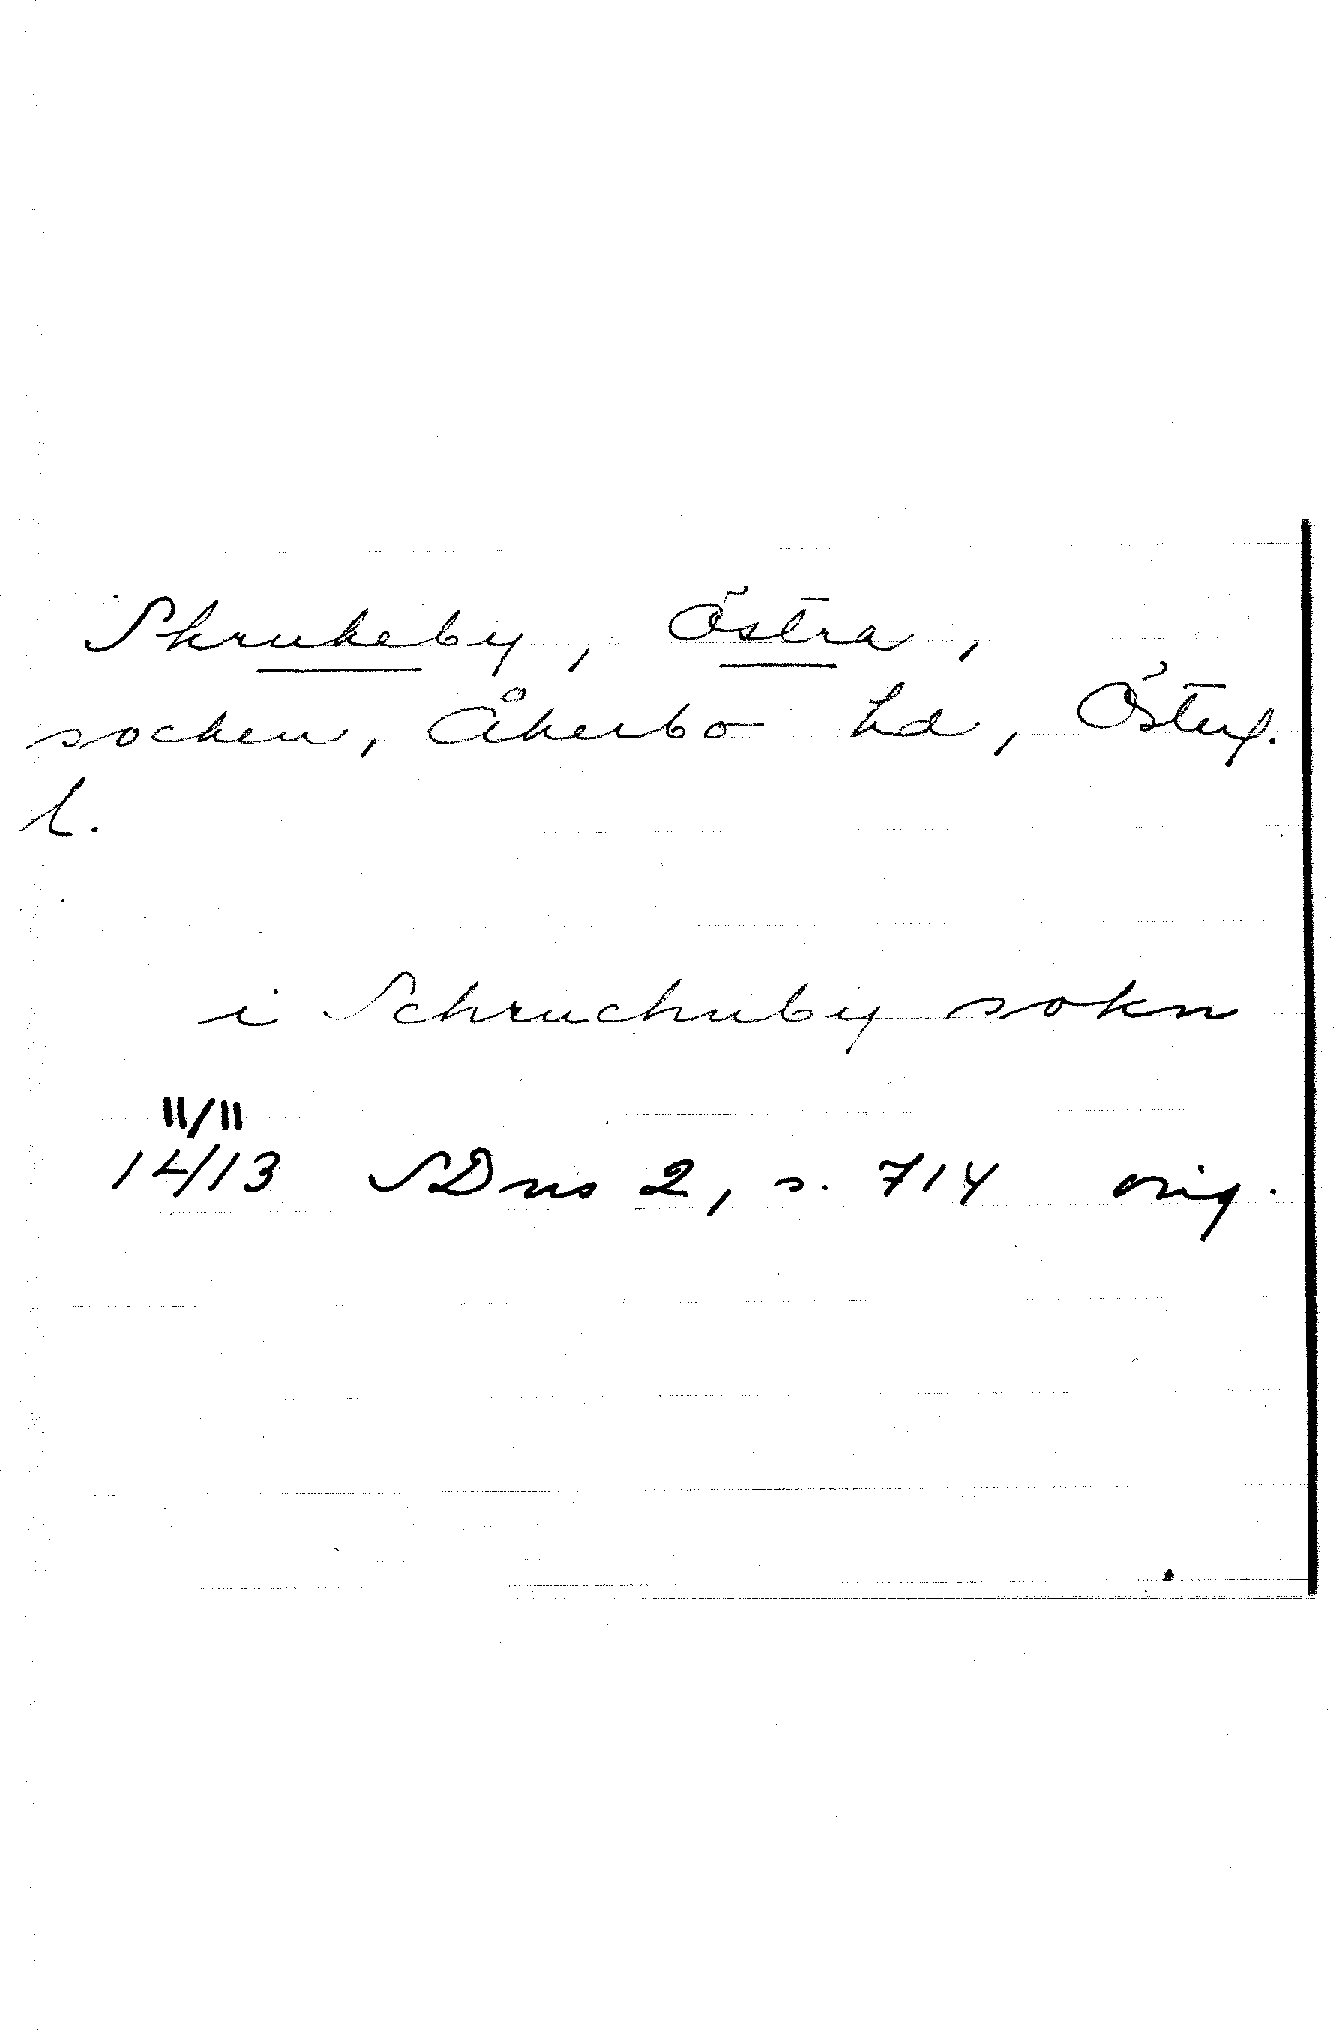 Skrukeby, Östra,
socken, Åkerbo hd, Österg.
l.
i Schruchuby sokn
11/11
14/13 SDns 2, s. 714 orig.